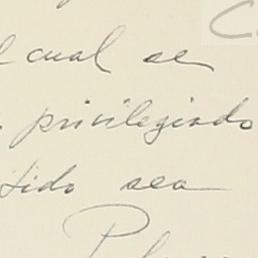 l cual se
privilegiado
tido sea